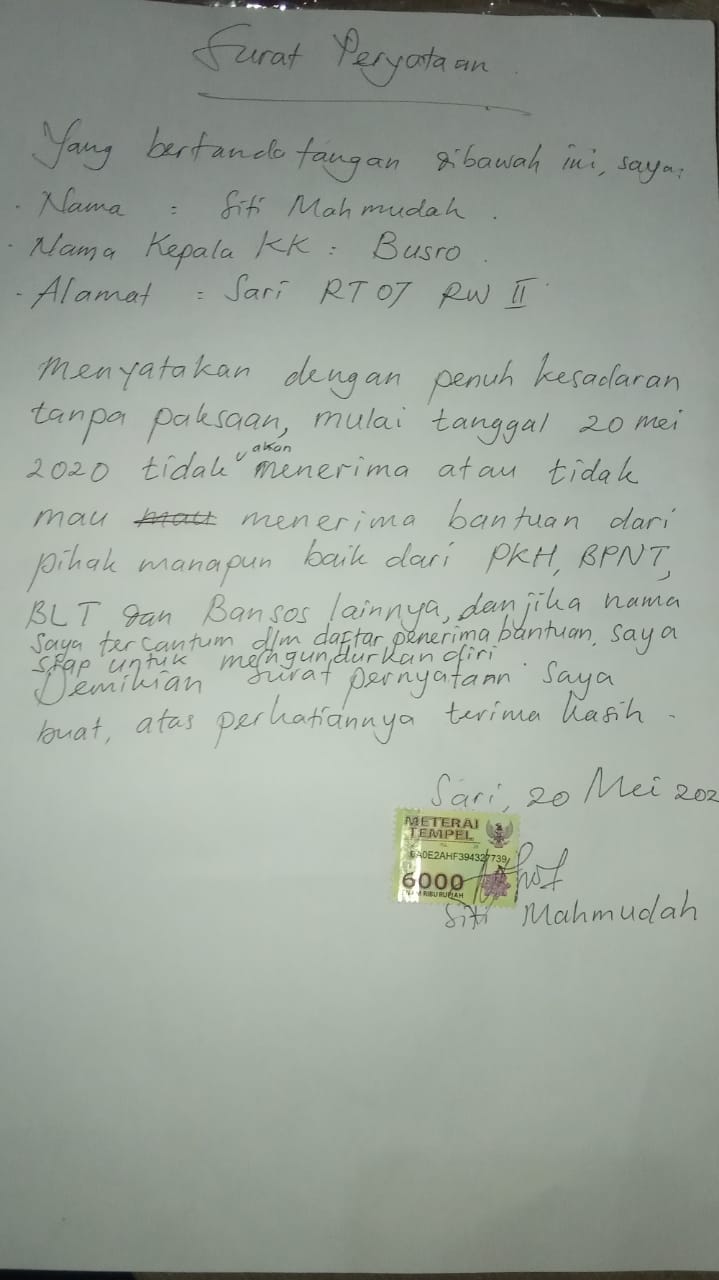 Surat Peryataan
Yang bertanda tangan dibawah ini, saya:
- Nama : Siti Mahmudah.
- Nama Kepala KK : Busro.
- Alamat : Sari RT 07 RW II
menyatakan dengan penuh kesadaran
tanpa paksaan, mulai tanggal 20 mei
2020 tidak akan menerima atau tidak
mau mau menerima bantuan dari
pihak manapun baik dari PKH, BPNT,
BLT dan Bansos lainnya, dan jika nama
saya tercantum dlm daftar penerima bantuan, saya
siap untuk mengundurkan diri.
Demikian surat pernyatann saya
buat, atas perhatiannya terima kasih.
Sari, 20 Mei 202
METERAI
TEMPEL
6A0E2AHF394327739
6000
ENAM RIBU RUPIAH
Siti Mahmudah